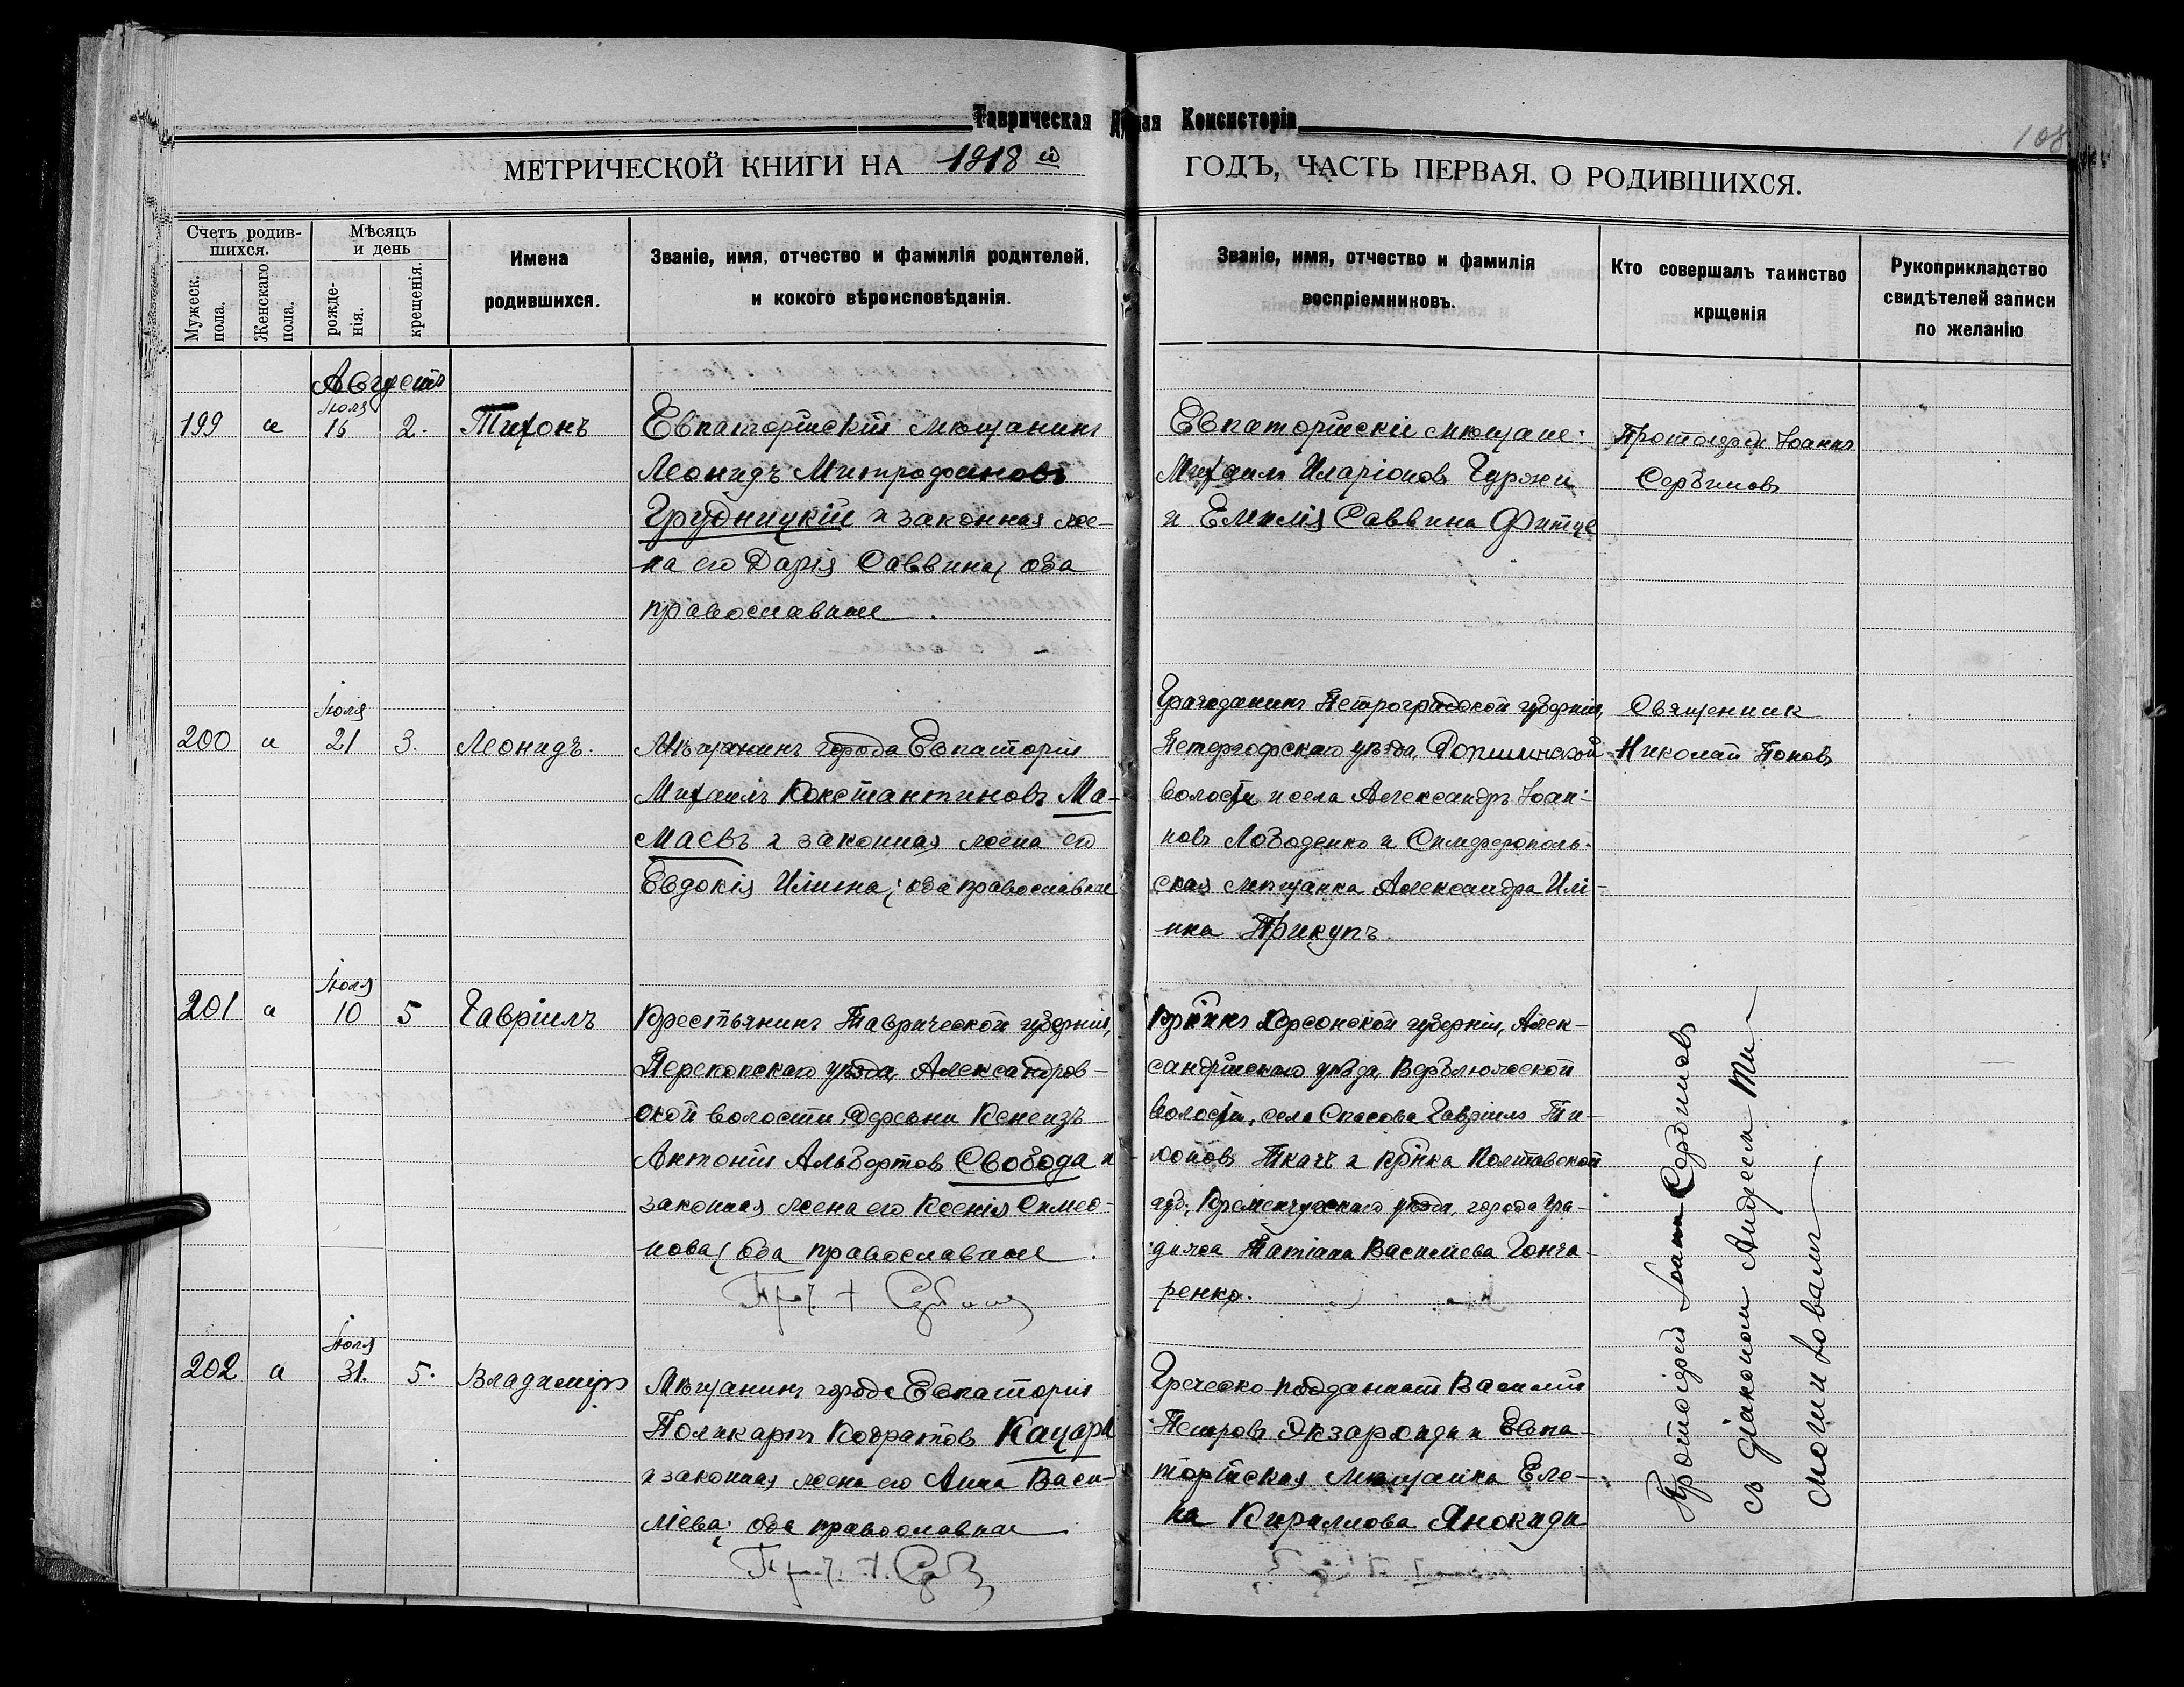 Таврическая Д ная Консисторія
108
МЕТРИЧЕСКОЙ КНИГИ НА 1918 й ГОДЪ, ЧАСТЬ ПЕРВАЯ. О РОДИВШИХСЯ.
Счетъ родив-
шихся.
Мужеск. пола.
Женскаго пола.
Мѣсяцъ
и день
рожде-
нія.
крещенія.
Имена
родившихся.
Званіе, имя, отчество и фамилія родителей,
и кокого вѣроисповѣданія.
Званіе, имя, отчество и фамилія
воспріемниковъ.
Кто совершалъ таинство
крщенія
Рукоприкладство
свидѣтелей записи
по желанію
Августъ
199 а Іюля 16 2. Тихонъ
Евпаторійскій мѣщанинъ
Леонидъ Митрофановъ
Грудницкій и законная же-
на его Дарія Саввина, оба
православные.
Евпаторійскіе мѣщане:
Михаилъ Иларіоновъ Гуржи
и Емилія Саввина
Протоіерей Іоаннъ
Сербиновъ
200 а Іюля 21 3. Леонидъ.
Мѣщанинъ города Евпаторіи
Михаилъ Константиновъ Ма-
маевъ и законная жена его
Евдокія Илиина; оба православные
Гражданинъ Петроградской губерніи,
Петергофскаго уѣзда, Ропшинской
волости и села Александръ Іоан-
новъ Лободенко и Симферополь-
ская мѣщанка Александра Илі-
ина Прикупъ.
Священник
Николай Поповъ
201 а Іюля 10 5 Гавріилъ
Крестьянинъ Таврической губерніи,
Перекопскаго уѣзда, Александров-
ской волости, деревни Кенегзъ
Антоній Альбертовъ Свобода и
законная жена его Ксенія Симео-
нова, оба православные.
Пр. І. Сербиновъ
Кр̃нинъ Херсонской губерніи, Алек-
сандрійскаго уѣзда, Вербл
волости, села Спасова Гавріилъ Ти-
хоновъ Ткачъ и кр̃нка Полтавской
губ., Кременчугскаго уѣзда, города Гра-
дижа Татіана Василіева Гонча-
ренко.
202 а Іюля 31. 5. Владиміръ
Мѣщанинъ города Евпаторіи
Поликарпъ Кодратовъ Кацари
и законная жена его Анна Васи-
ліева; оба православные
Пр. І. Серб
Греческо-подданный Василій
Петровъ Экзархиди и Евпа-
торійская мѣщанка Еле-
на Кириллова Янокиди
Протоіерей Іоаннъ Сербиновъ
съ діакономъ Андреемъ Ти-
мошитовымъ